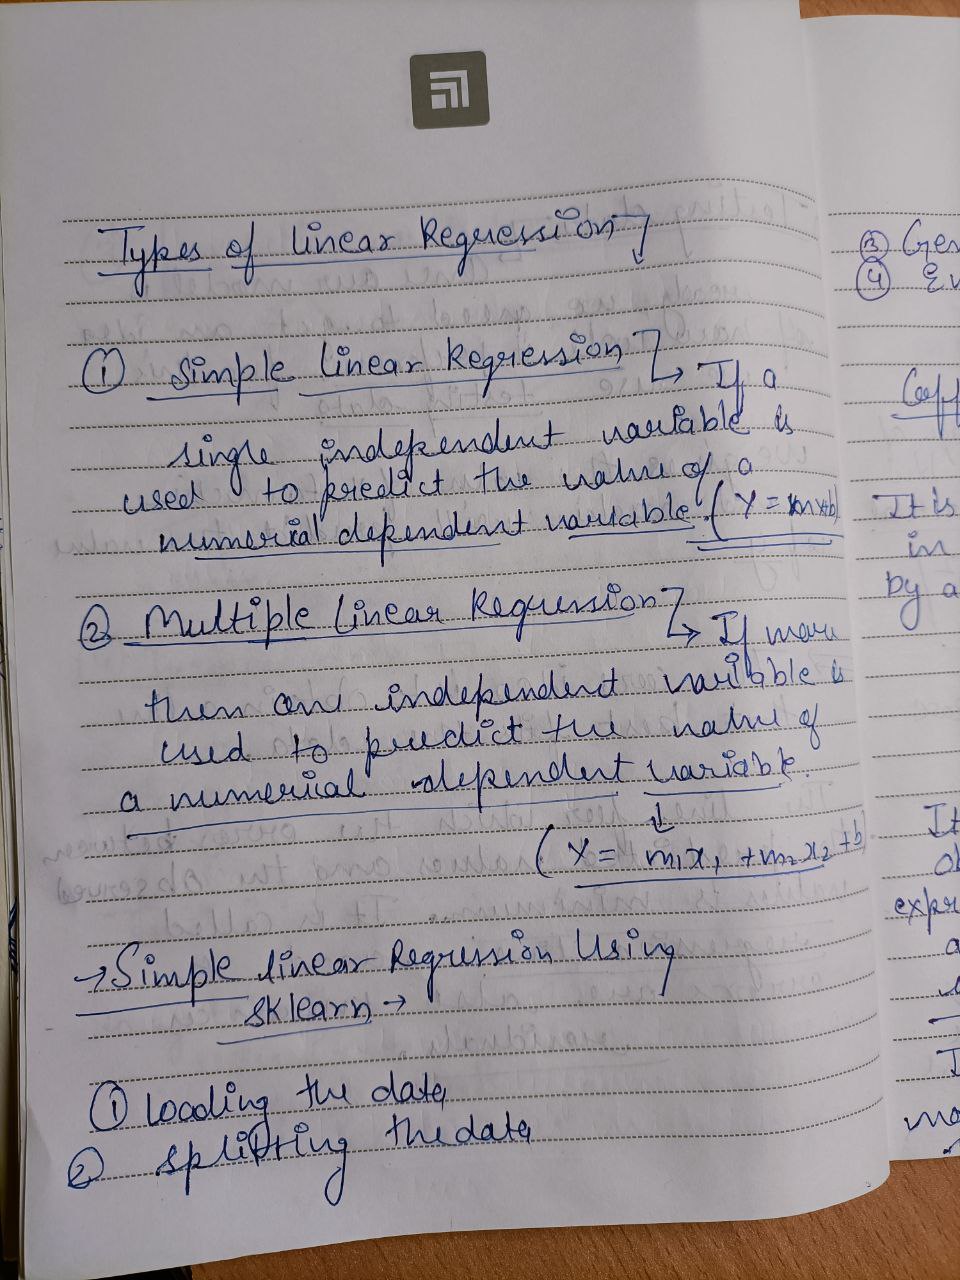 Types of linear Regression
① Simple linear Regression → If a
single independent variable is
used to predict the value of a
numerical dependent variable. (Y = mx+b)
② Multiple linear Regression → If more
then one independent varibble is
used to predict the value of
a numerical dependent variable.
(Y = m1x1 + m2x2 + b)
→ Simple linear Regression Using
sklearn →
① loading the data
② splitting the data
③ Gen
④ Ev
Coff
It is
in
by a
It
ob
expr
a
I
mo